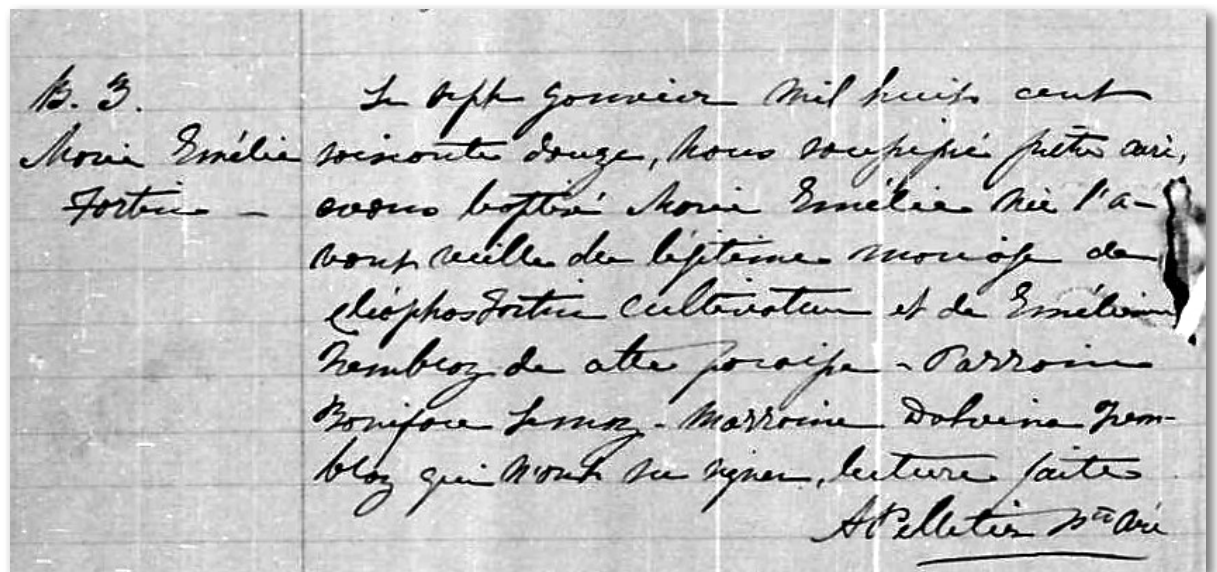 B. 3.
Marie Emélie
Fortin -
Le sept janvier mil huit cent
soixante douze, nous soussigné prêtre curé,
avons baptisé Marie Emélie née l'a-
vant veille du légitime mariage de
Cléophas Fortin cultivateur et de Emélie
Tremblay de cette paroisse - Parrain
Boniface - Marraine Dalvina Trem-
blay qui n'ont su signer, lecture faite
A Pelletier Ptre Curé